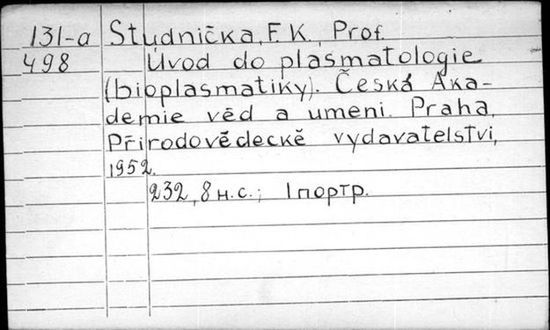 131-a Studnička, F. K., Prof.
498 Úvod do plasmatologie
(bioplasmatiky). Česká Aka-
demie věd a umeni. Praha,
Přírodovědecké vydavatelstvi,
1952.
232, 8 н.с.; 1 портр.